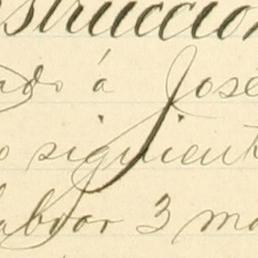 struccion
ado á José
o siguient
labrar 3 m